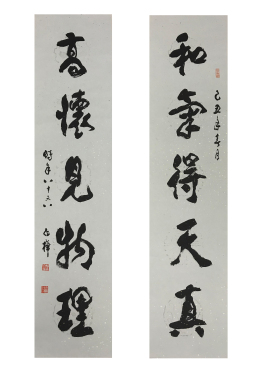 和氣得天真
己丑年春月
高懷見物理
時年八十又八